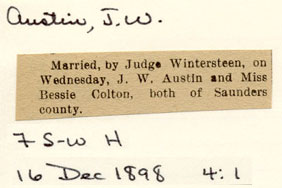 Austin, J.W.
Married, by Judge Wintersteen, on
Wednesday, J. W. Austin and Miss
Bessie Colton, both of Saunders
county.
7 S-W H
16 Dec 1898 4:1